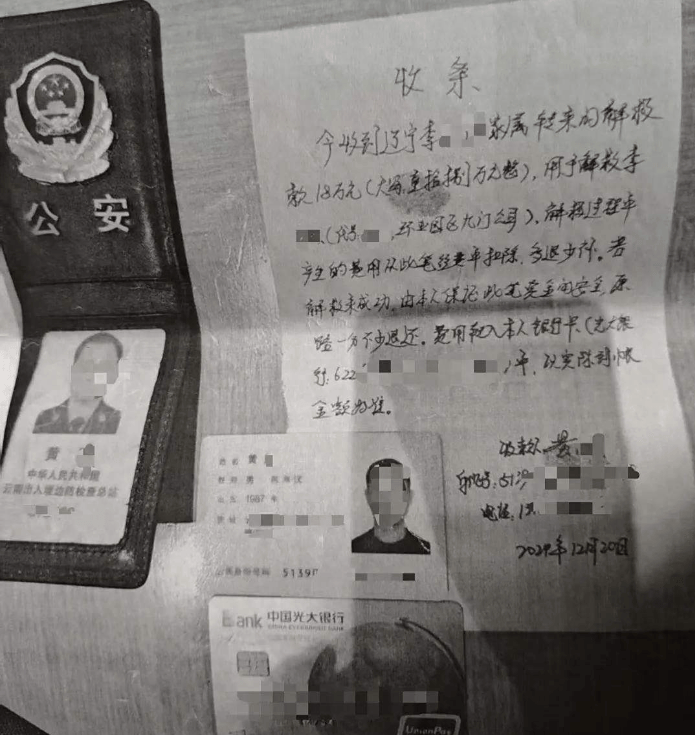 公安
黄
中华人民共和国
云南出入境边防检查总站
收条
今收到辽宁李 家属转来的解救
款18万元（大写:壹拾捌万元整），用于解救李
（代号 ，环亚园区九门公司），解救过程中
产生的费用从此笔经费中扣除，多退少补。若
解救未成功，由本人保证此笔资金的安全，原
路一分不少退还。费用转入本人银行卡（光大银
行：622 ）中，以实际到账
金额为准。
收款人：黄
身份证号：5139
电话：1
2024年12月20日
姓名 黄
性别 男 民族 汉
出生 1987 年
住址
公民身份号码 5139
Bank 中国光大银行
CHINA EVERBRIGHT BANK
UnionPay